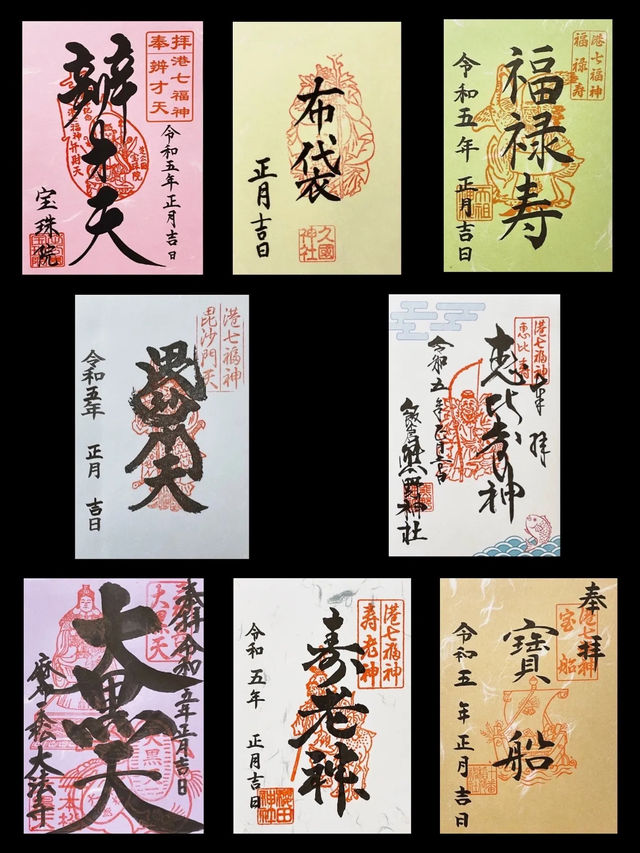 拝港七福神
奉辨才天
辨才天
令和五年正月吉日
宝珠院
布袋
正月吉日
久國
神社
港七福神
福禄寿
福禄寿
令和五年
正月吉日
港七福神
毘沙門天
毘沙門天
令和五年
正月吉日
港七福神
恵比寿
奉拝
恵比寿神
令和五年正月吉日
熊野神社
奉拝
令和五年正月吉日
大黒天
大黒天
麻布一本松大法寺
港七福神
寿老神
寿老神
令和五年
正月吉日
櫻田
神社
奉拝
港七福神
宝船
寶船
令和五年正月吉日